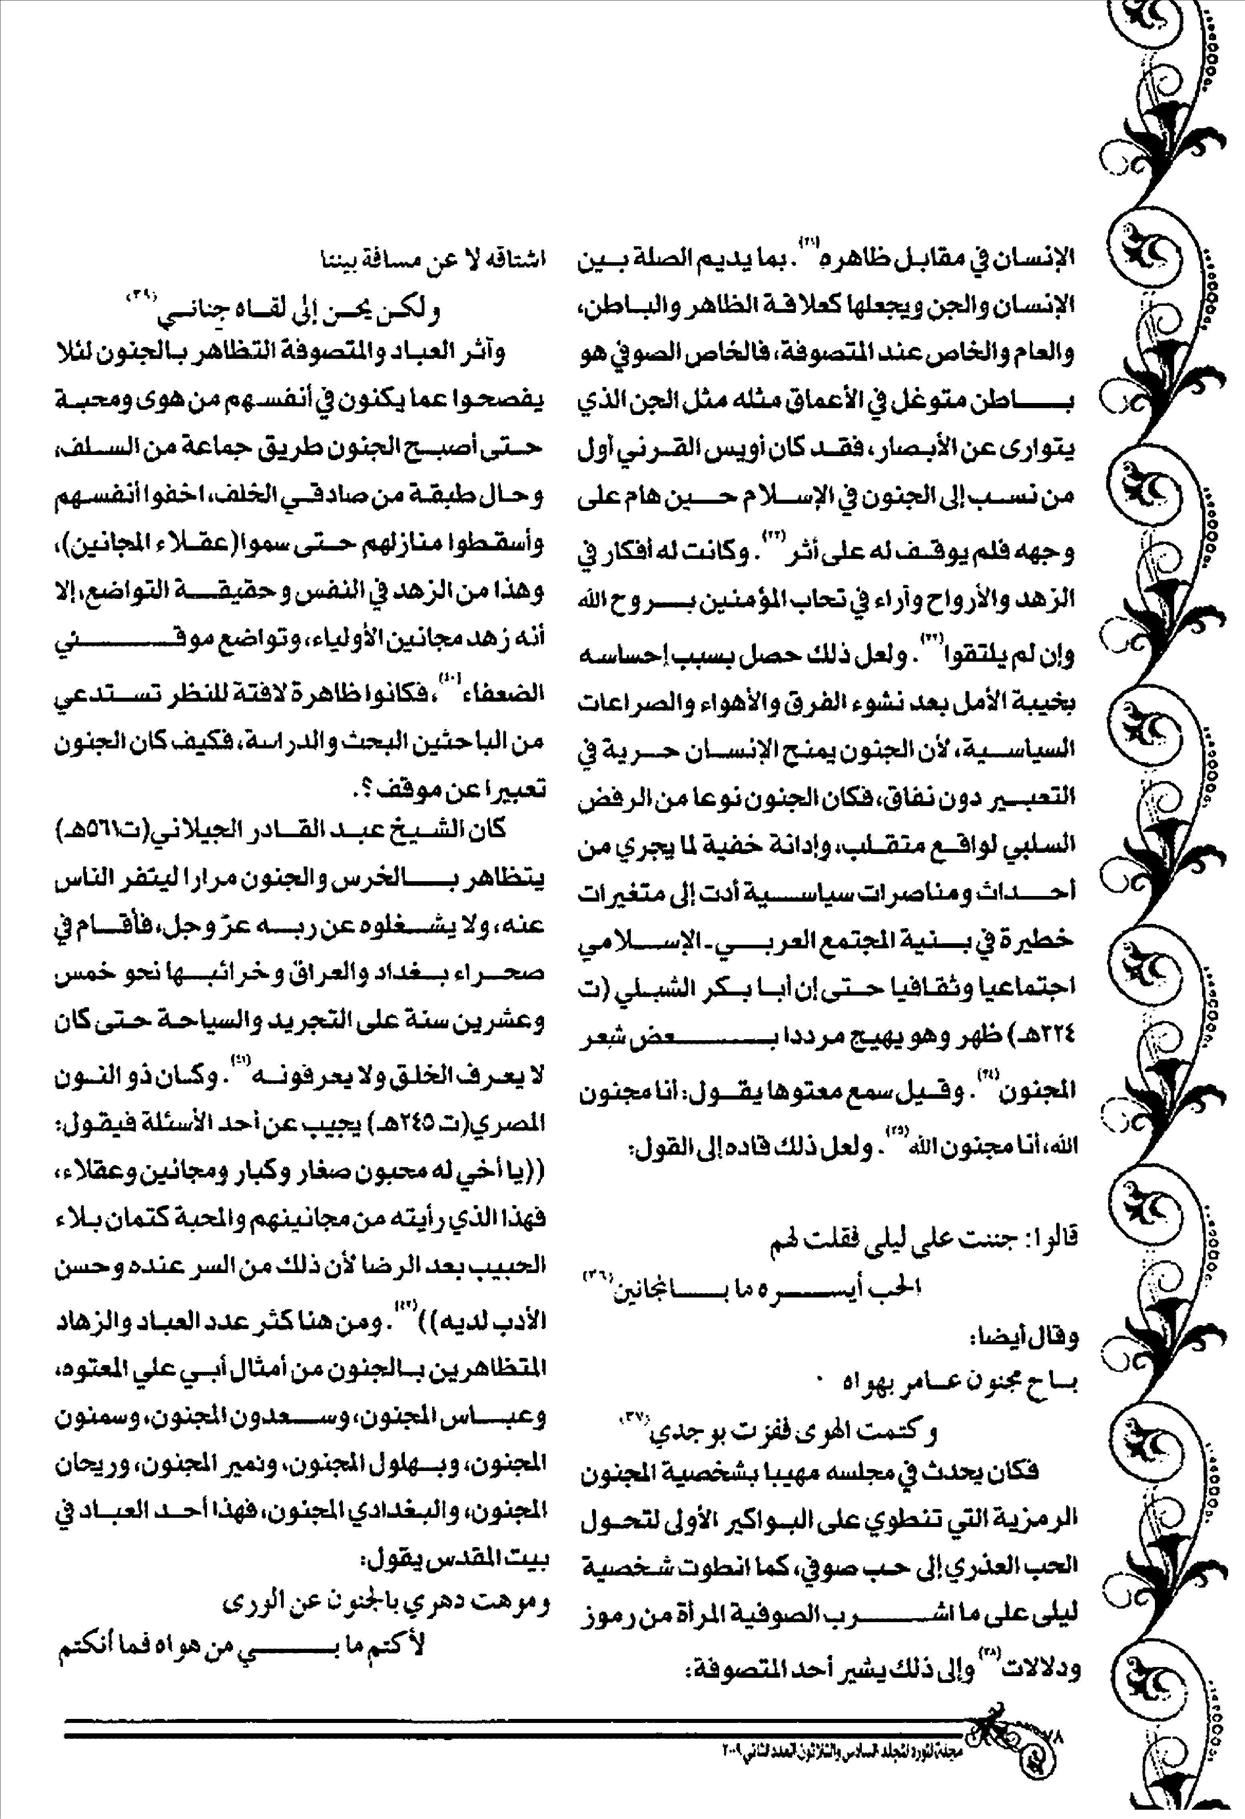 الإنسان في مقابل ظاهره(٣١). بما يديم الصلة بين
الإنسان والجن ويجعلها كعلاقة الظاهر والباطن،
والعام والخاص عند المتصوفة، فالخاص الصوفي هو
باطن متوغل في الأعماق مثله مثل الجن الذي
يتوارى عن الأبصار، فقد كان أويس القرني أول
من نسب إلى الجنون في الإسلام حين هام على
وجهه فلم يوقف له على أثر(٣٢). وكانت له أفكار في
الزهد والأرواح وآراء في تحاب المؤمنين بروح الله
وإن لم يلتقوا(٣٣). ولعل ذلك حصل بسبب إحساسه
بخيبة الأمل بعد نشوء الفرق والأهواء والصراعات
السياسية، لأن الجنون يمنح الإنسان حرية في
التعبير دون نفاق، فكان الجنون نوعا من الرفض
السلبي لواقع متقلب، وإدانة خفية لما يجري من
أحداث ومناصرات سياسية أدت إلى متغيرات
خطيرة في بنية المجتمع العربي- الإسلامي
اجتماعيا وثقافيا حتى إن أبا بكر الشبلي (ت
٢٢٤هـ) ظهر وهو يهيج مرددا بعض شعر
المجنون(٣٤). وقيل سمع معتوها يقول: أنا مجنون
الله، أنا مجنون الله(٣٥). ولعل ذلك قاده إلى القول:
قالوا: جننت على ليلى فقلت لهم
الحب أيسره ما بالمجانين(٣٦)
وقال أيضا:
باح مجنون عامر بهواه
وكتمت الهوى ففزت بوجدي(٣٧)
فكان يحدث في مجلسه مهيبا بشخصية المجنون
الرمزية التي تنطوي على البواكير الأولى لتحول
الحب العذري إلى حب صوفي، كما انطوت شخصية
ليلى على ما اشرب الصوفية المرأة من رموز
ودلالات(٣٨) وإلى ذلك يشير أحد المتصوفة:
اشتاقه لا عن مسافة بيننا
ولكن يحن إلى لقاه جناني(٣٩)
وآثر العباد والمتصوفة التظاهر بالجنون لئلا
يفصحوا عما يكنون في أنفسهم من هوى ومحبة
حتى أصبح الجنون طريق جماعة من السلف،
وحال طبقة من صادقي الخلف، اخفوا أنفسهم
وأسقطوا منازلهم حتى سموا(عقلاء المجانين)،
وهذا من الزهد في النفس وحقيقة التواضع، إلا
أنه زهد مجانين الأولياء، وتواضع موقني
الضعفاء(٤٠)، فكانوا ظاهرة لافتة للنظر تستدعي
من الباحثين البحث والدراسة، فكيف كان الجنون
تعبيرا عن موقف؟.
كان الشيخ عبد القادر الجيلاني(ت٥٦١هـ)
يتظاهر بالخرس والجنون مرارا ليتفر الناس
عنه، ولا يشغلوه عن ربه عزّ وجل، فأقام في
صحراء بغداد والعراق وخرائبها نحو خمس
وعشرين سنة على التجريد والسياحة حتى كان
لا يعرف الخلق ولا يعرفونه(٤١). وكان ذو النون
المصري(ت ٢٤٥هـ) يجيب عن أحد الأسئلة فيقول:
((يا أخي له محبون صغار وكبار ومجانين وعقلاء،
فهذا الذي رأيته من مجانينهم والمحبة كتمان بلاء
الحبيب بعد الرضا لأن ذلك من السر عنده وحسن
الأدب لديه))(٤٢). ومن هنا كثر عدد العباد والزهاد
المتظاهرين بالجنون من أمثال أبي علي المعتوه،
وعباس المجنون، وسعدون المجنون، وسمنون
المجنون، وبهلول المجنون، ونمير المجنون، وريحان
المجنون، والبغدادي المجنون، فهذا أحد العباد في
بيت المقدس يقول:
وموهت دهري بالجنون عن الورى
لأكتم ما بي من هواه فما أنكتم
٧٨
مجلة المورد المجلد السادس والثلاثون العدد الثاني ٢٠٠٩